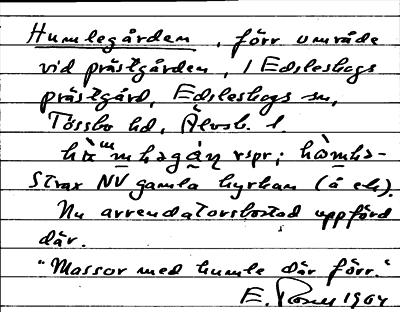 Humlegården, förr område
vid prästgården, 1 Edsleskogs
prästgård, Edsleskogs sn,
Tössbo hd, Älvsb. l.
rspr;
Strax NV gamla kyrkan (å ek).
Nu arrendatorsbostad uppförd
där.
"Massor med humle där förr."
E. 1964